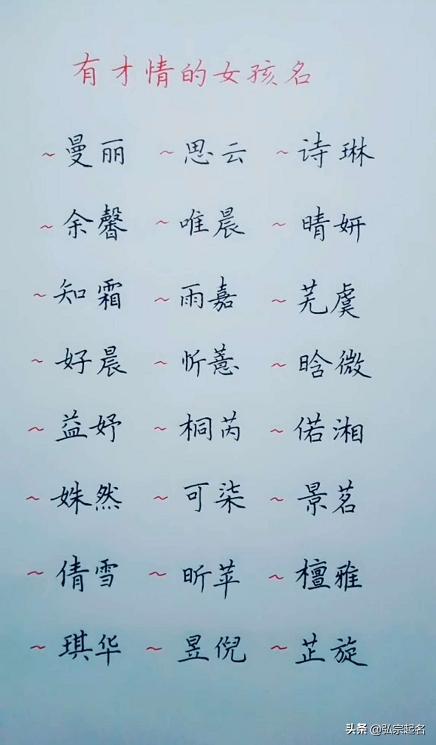 有才情的女孩名
~曼丽 ~思云 ~诗琳
~余馨 ~唯晨 ~晴妍
~知霜 ~雨嘉 ~芜虞
~好晨 ~忻薏 ~晗微
~益妤 ~桐芮 ~偌湘
~姝然 ~可柒 ~景茗
~倩雪 ~昕苹 ~檀雅
~琪华 ~昱倪 ~芷旋
头条 @弘宗起名